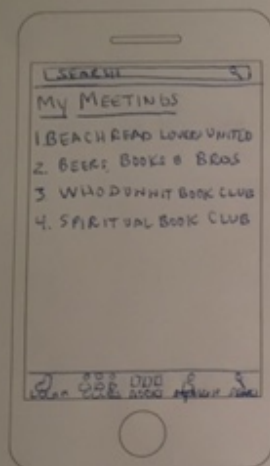 SEARCH
MY MEETINGS
1. BEACH READ LOVERS UNITED
2. BEERS, BOOKS & BROS
3. WHODUNNIT BOOK CLUB
4. SPIRITUAL BOOK CLUB
CLUBS BOOKS